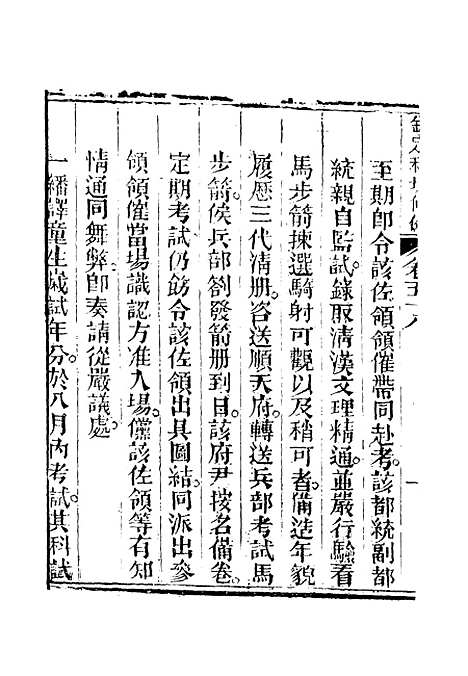 欽定科場條例 卷五十八 一
至期卽令該佐領領催帶同赴考該都統副都
統親自監試錄取清漢文理精通並嚴行驗看
馬步箭揀選騎射可觀以及稍可者備造年貌
履歷三代清册咨送順天府轉送兵部考試馬
步箭俟兵部劄發箭册到日該府尹按名備卷
定期考試仍飭令該佐領出具圖結同派出叅
領領催當場識認方准入場儻該佐領等有知
情通同舞弊卽奏請從嚴議處
一繙譯童生歲試年分於八月內考試其科試